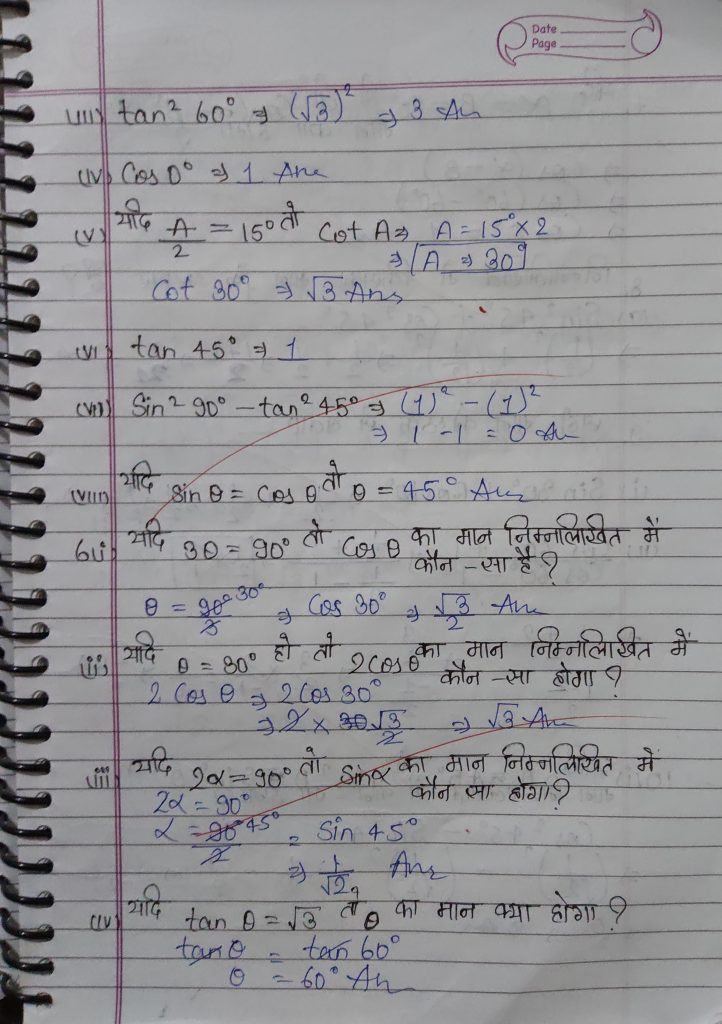 Date
Page
(iii) tan² 60° ⇒ (√3)² ⇒ 3 An
(iv) Cos 0° ⇒ 1 Ans
(v) यदि A/2 = 15° तो Cot A ⇒ A = 15° × 2
⇒ A ⇒ 30°
Cot 30° ⇒ √3 Ans
(vi) tan 45° ⇒ 1
(vii) Sin² 90° – tan² 45° ⇒ (1)² – (1)²
⇒ 1 – 1 = 0 An
(viii) यदि sin θ = cos θ तो θ = 45° Ans
6(i) यदि 3θ = 90° तो Cos θ का मान निम्नलिखित में
कौन-सा है?
θ = 90°/3 30° ⇒ Cos 30° ⇒ √3/2 Ans
(ii) यदि θ = 30° हो तो 2cos θ का मान निम्नलिखित में
कौन-सा होगा?
2 Cos θ ⇒ 2 Cos 30°
⇒ 2 × √3/2 ⇒ √3 Ans
(iii) यदि 2α = 90° तो Sinα का मान निम्नलिखित में
कौन सा होगा?
2α = 90°
α = 90°/2 45° = Sin 45°
⇒ 1/√2 Ans
(iv) यदि tan θ = √3 तो θ का मान क्या होगा?
tan θ = tan 60°
θ = 60° An